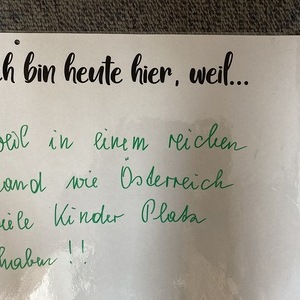 ch bin heute hier, weil...
weil in einem reichen
and wie Österreich
viele Kinder Platz
haben !!